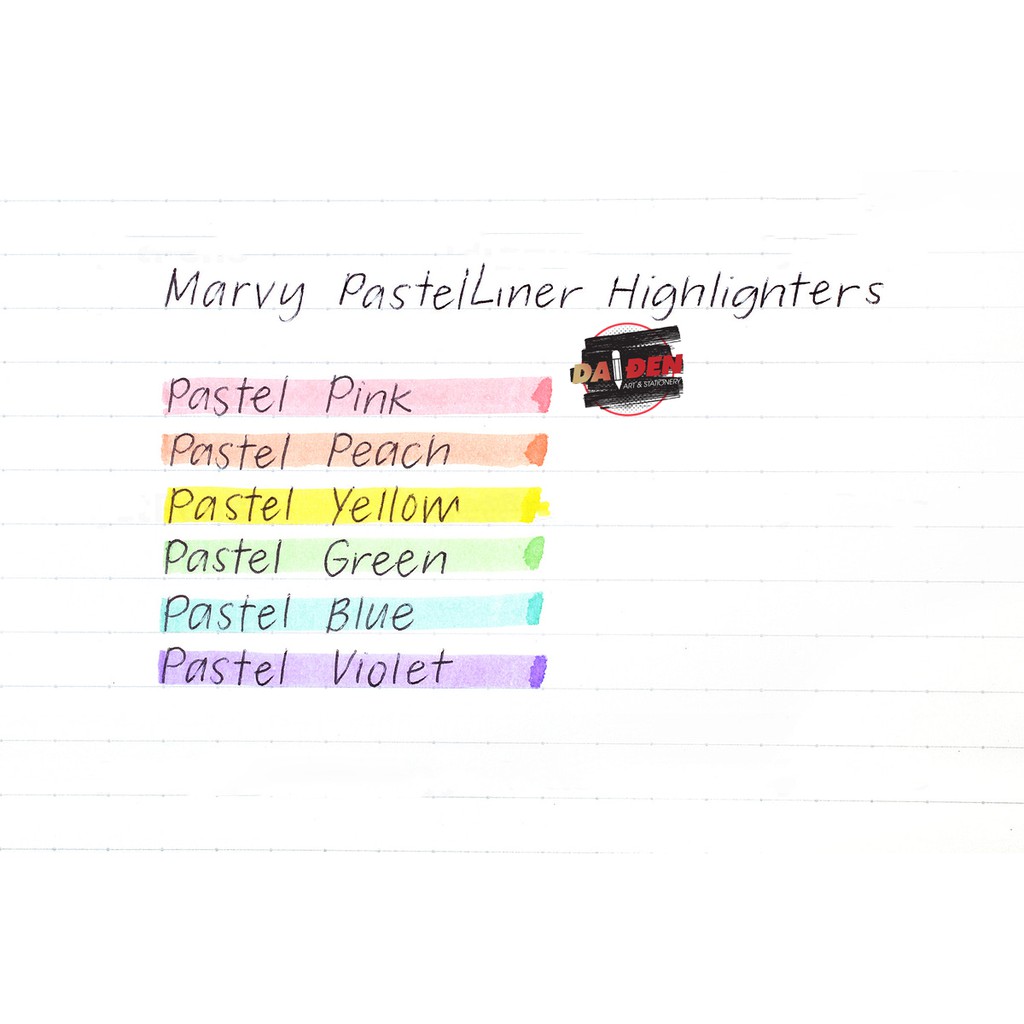 Marvy PastelLiner Highlighters
DAIDEN
ART & STATIONERY
Pastel Pink
Pastel Peach
Pastel Yellow
Pastel Green
Pastel Blue
Pastel Violet